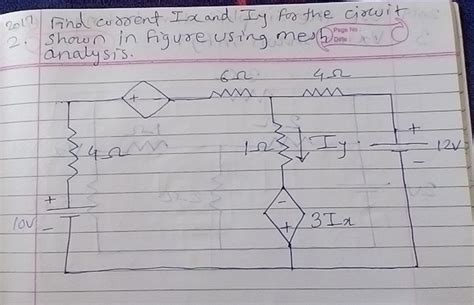 2017 Find current Ix and Iy for the circuit
2. shown in figure using mesh
Page No.
Date
analysis.
6Ω 4Ω
+ -
4Ω 1Ω Iy + 12V
-
+
10V - - + 3Ix